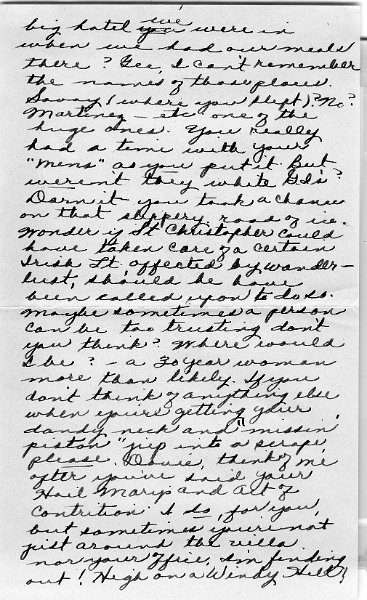 big hotel we were in
when we had our meals
there? Gee, I can't remember
the names of those places.
Savoy (where you slept)? No?
Martinez — etc. one of the
huge ones. You really
had a time with your
"mens" as you put it. But
weren't they white GI's?
Darn it you took a chance
on that slippery road of ice.
Wonder if St. Christopher could
have taken care of a certain
Irish Lt. affected by wander-
lust, should he have
been called upon to do so.
Maybe sometimes a person
can be too trusting don't
you think? Where would
I be? — a 30 year woman
more than likely. If you
don't think of anything else
when you're getting your
dandy neck and "missin'
piston" jeep into a scrape,
please, Davie, think of me
after you've said your
Hail Marys and Act of
Contrition. I do, for you,
but sometimes you're not
just around the villa
nor your office, I'm finding
out! High on a Windy Hill?